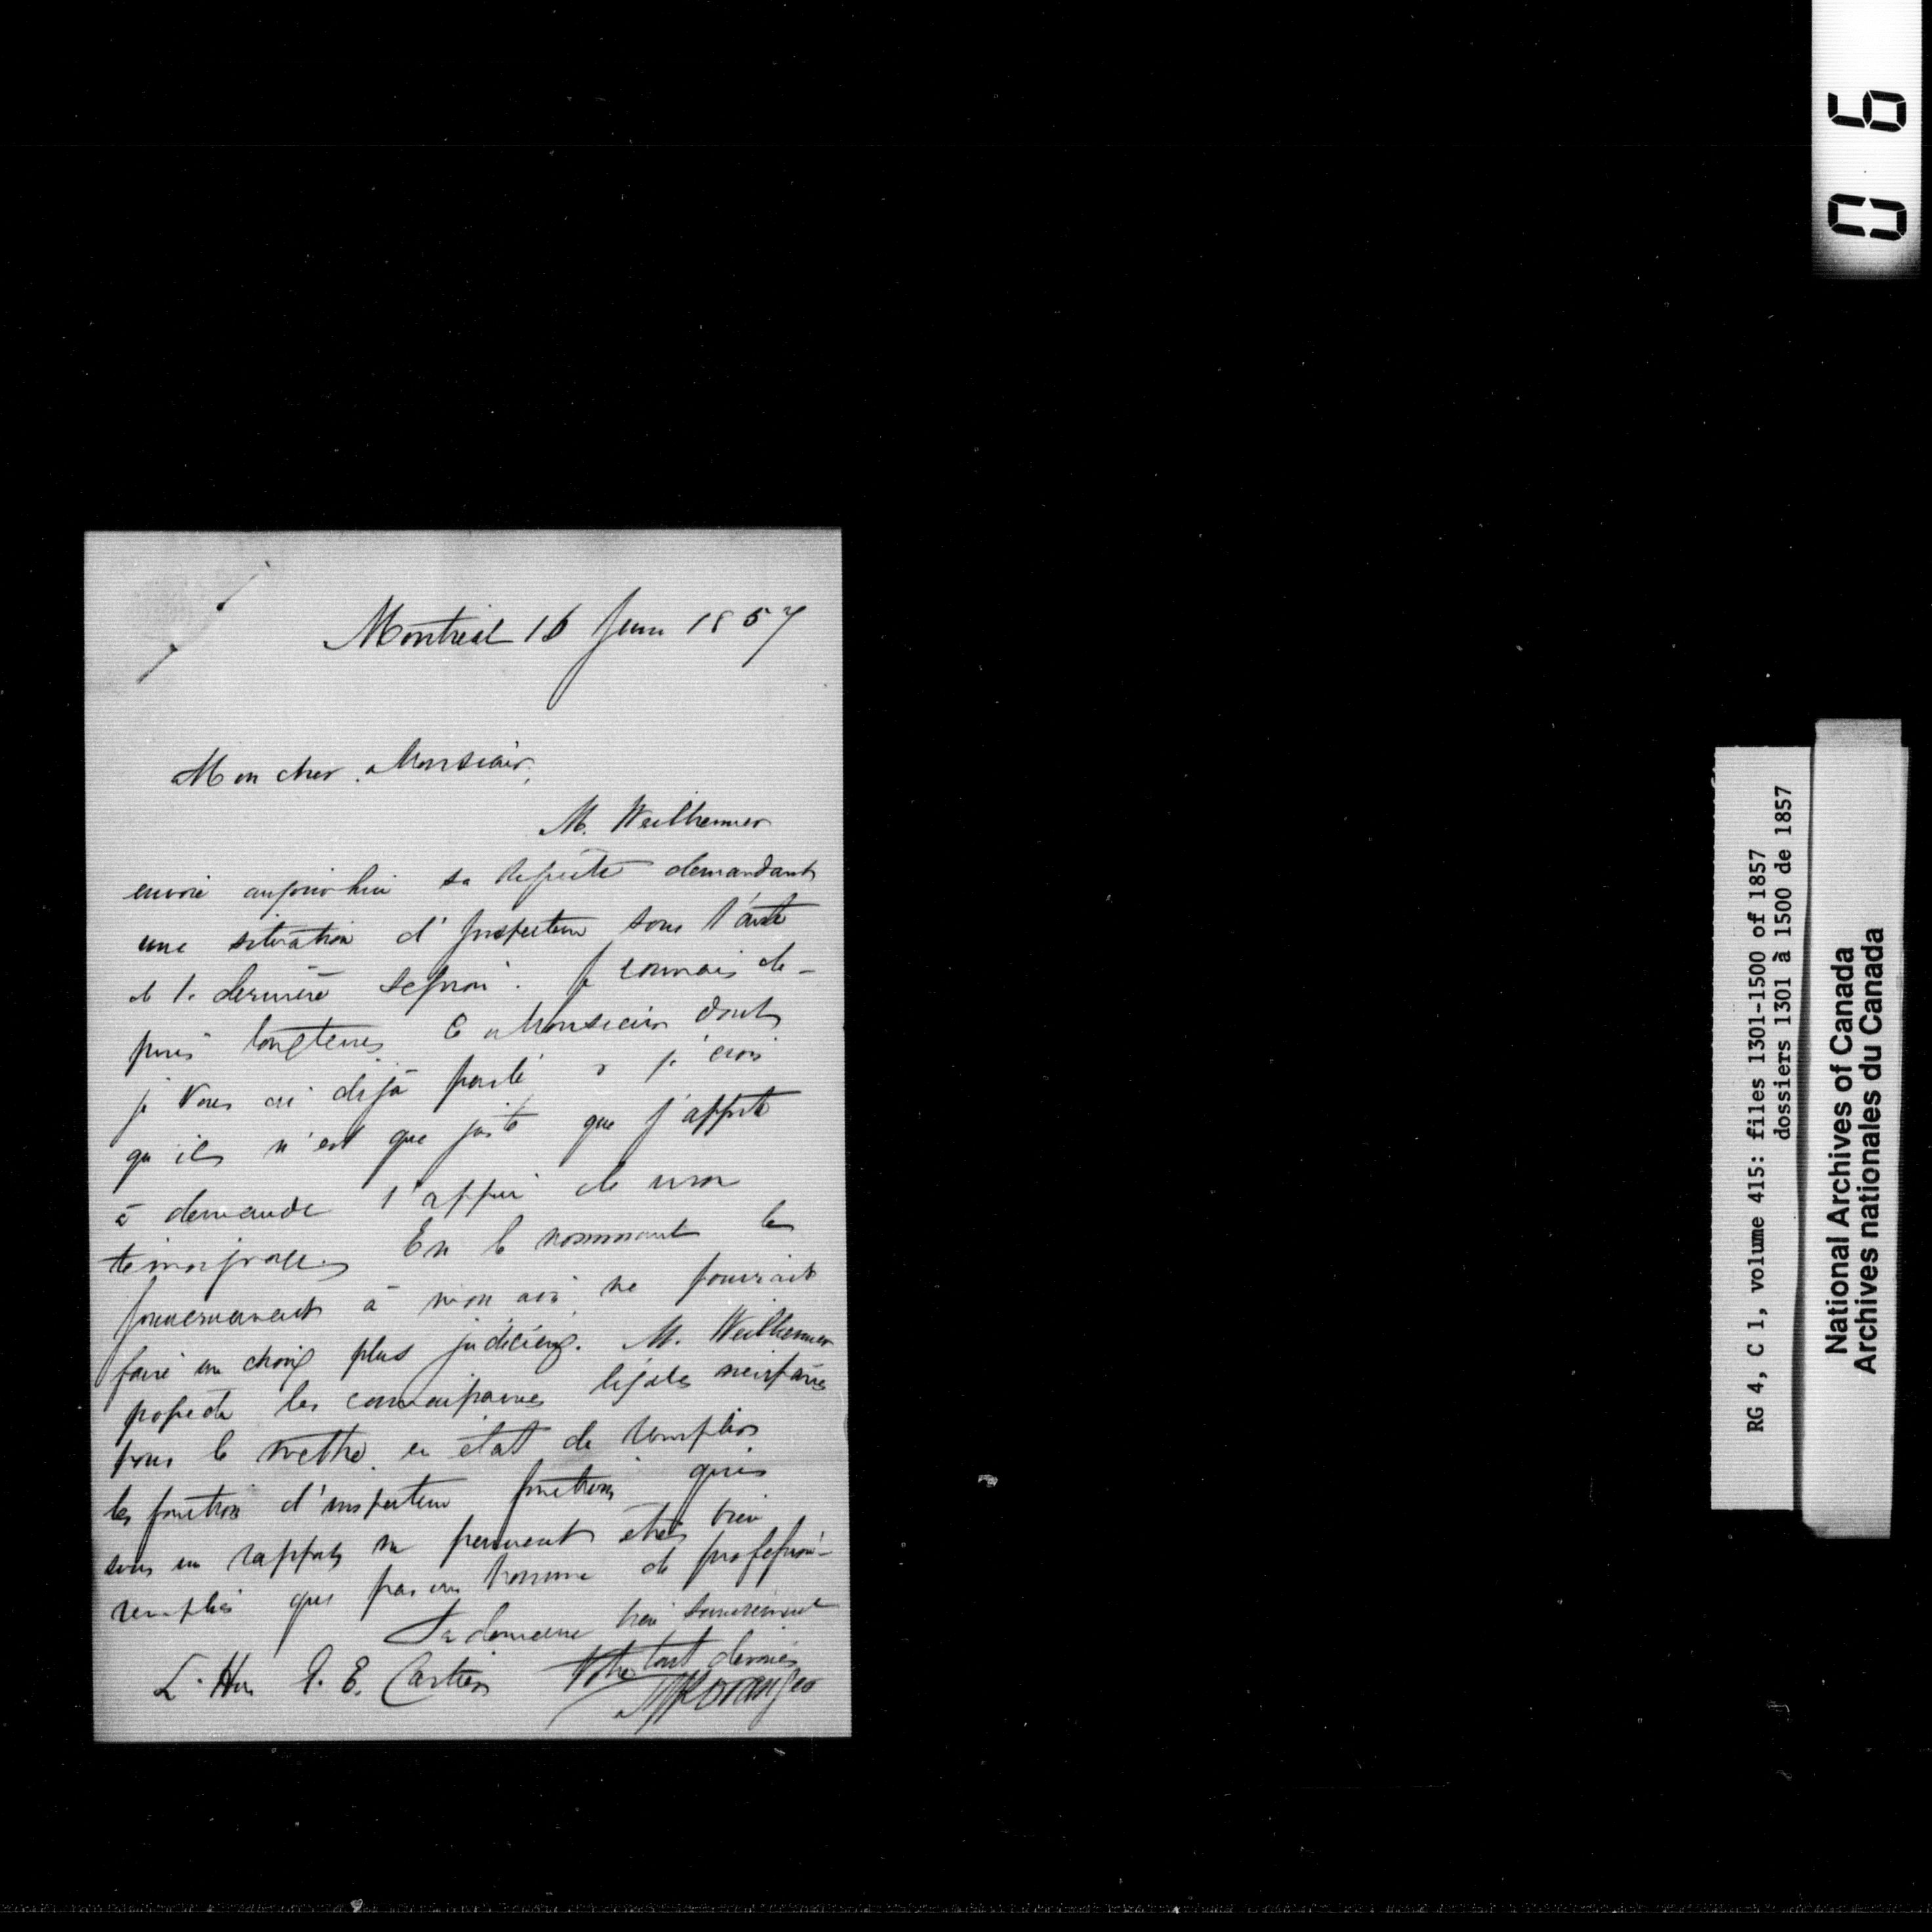 Montréal 16 Juin 1857
Mon cher Monsieur,
M. Weilbrenner
envoie aujourd'hui sa Requête demandant
une situation d'Inspecteur sous l'acte
de la dernière Session. Je connais de-
puis longtems ce Monsieur dont
je vous ai déjà parlé & je crois
qu'il n'est que juste que j'apporte
à demande l'appui de mon
témoignage. En le nommant le
gouvernement à mon avis ne pourrait
faire un choix plus judicieux. M. Weilbrenner
possede les connaissances légales nécessaires
pour le mettre en état de remplir
les fonctions d'inspecteur fonctions qui
sous un rapport ne peuvent être bien
remplies que par un homme de profession-
Je demeure bien sincèrement
Votre tout dévoué
L'Hon G. E. Cartier
Loranger
0 6
RG 4, C 1, volume 415: files 1301-1500 of 1857
dossiers 1301 à 1500 de 1857
National Archives of Canada
Archives nationales du Canada